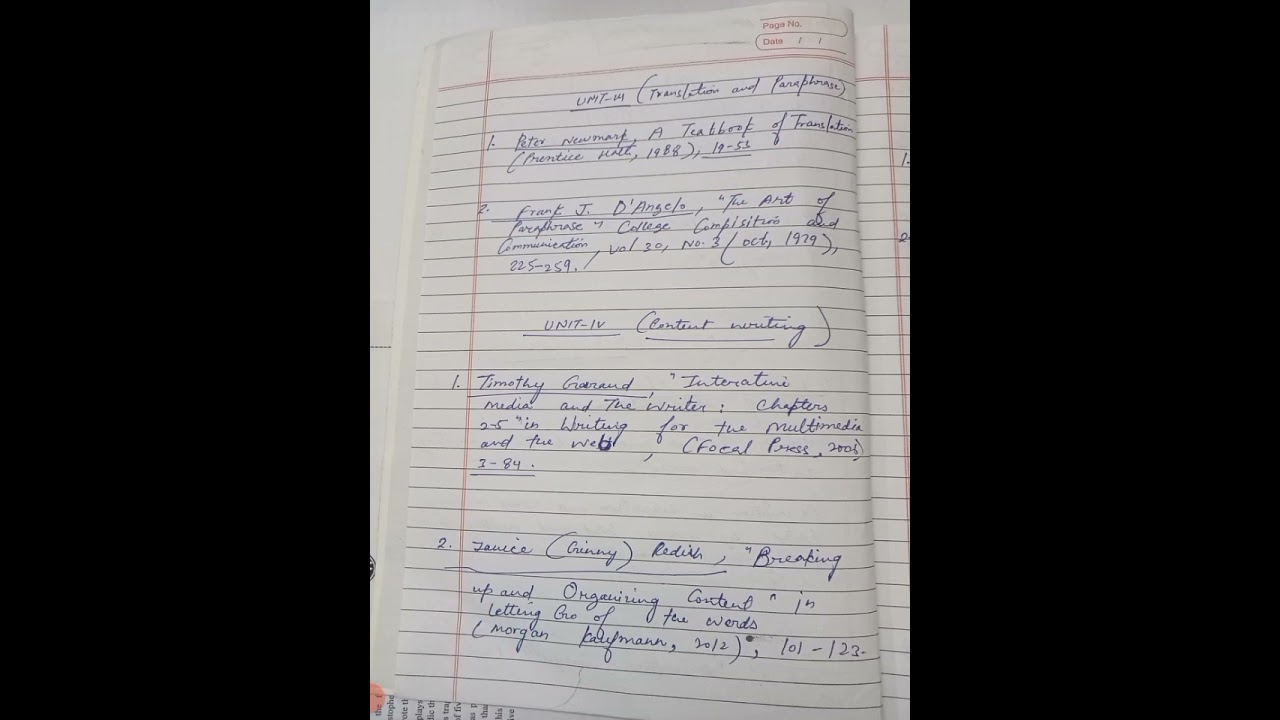 Page No.
Date / /
UNIT-III (Translation and Paraphrase)
1. Peter Newmark, A Textbook of Translation
(Prentice Hall, 1988), 19-53
2. Frank J. D'Angelo, "The Art of
Paraphrase" College Compisition and
Communication, Vol 30, No. 3 (Oct, 1979),
225-259.
UNIT-IV (Content writing)
1. Timothy Garrand, "Interative
media and The writer: Chapters
2-5" in Writing for the multimedia
and the Web, (Focal Press,
3-84.
2. Janice (Ginny) Redish, "Breaking
up and Organizing Content" in
Letting Go of the words
(Morgan Kaufmann, 2012), 101-123.
1.
2